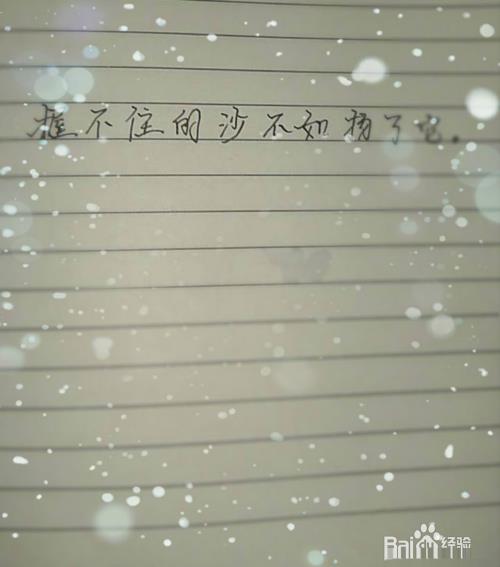 框不住的沙不如扬了它。
Bai 经验